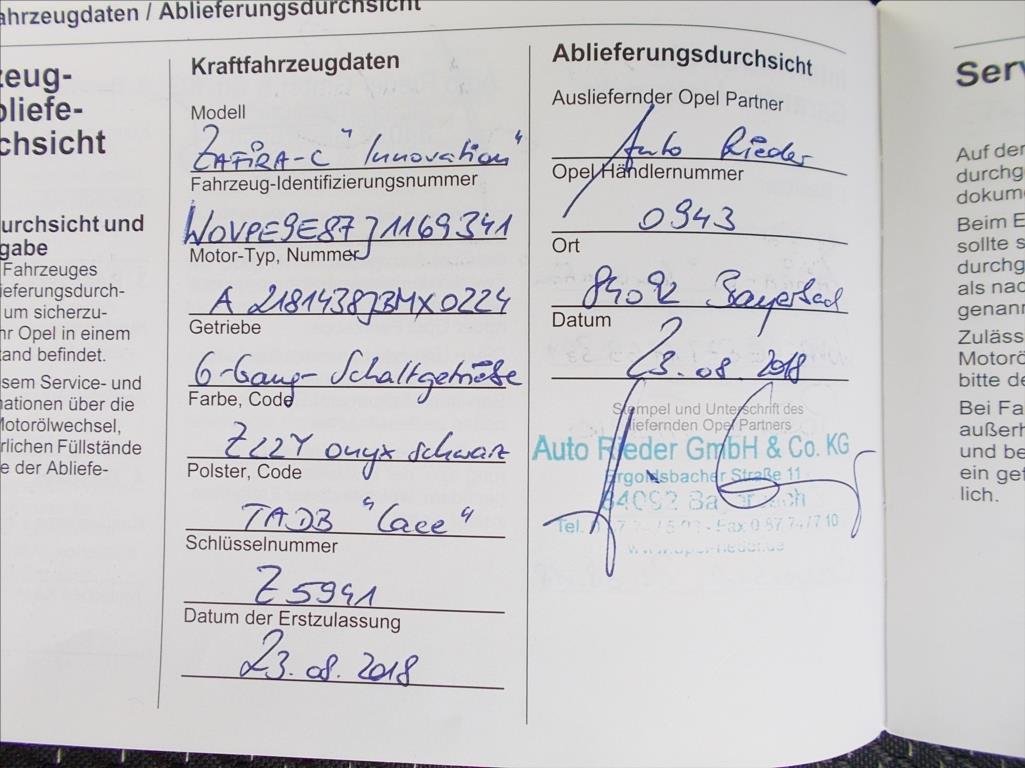 ahrzeugdaten / Ablieferungsdurchsicht
zeug-
bliefe-
chsicht
urchsicht und
gabe
Fahrzeuges
ieferungsdurch-
um sicherzu-
hr Opel in einem
tand befindet.
esem Service- und
nationen über die
Motorölwechsel,
rlichen Füllstände
e der Abliefe-
Kraftfahrzeugdaten
Modell
ZAFIRA-C "Innovation"
Fahrzeug-Identifizierungsnummer
W0VPE9E87J1169341
Motor-Typ, Nummer
A 2181438JBMX0224
Getriebe
6-Gang-Schaltgetriebe
Farbe, Code
Z22Y onyx schwarz
Polster, Code
TADB "Lace"
Schlüsselnummer
Z5941
Datum der Erstzulassung
23.08.2018
Ablieferungsdurchsicht
Ausliefernder Opel Partner
Auto Rieder
Opel Händlernummer
0943
Ort
84092 Bayerbach
Datum
23.08.2018
Stempel und Unterschrift des
liefernden Opel Partners
Auto Rieder GmbH & Co. KG
Ergoldsbacher Straße 11
84092 Bayerbach
Tel.
Fax 0 87 74/7 10
Serv
Auf der
durchg
dokum
Beim E
sollte s
durchg
als nac
genann
Zuläss
Motorö
bitte de
Bei Fa
außerh
und be
ein get
lich.